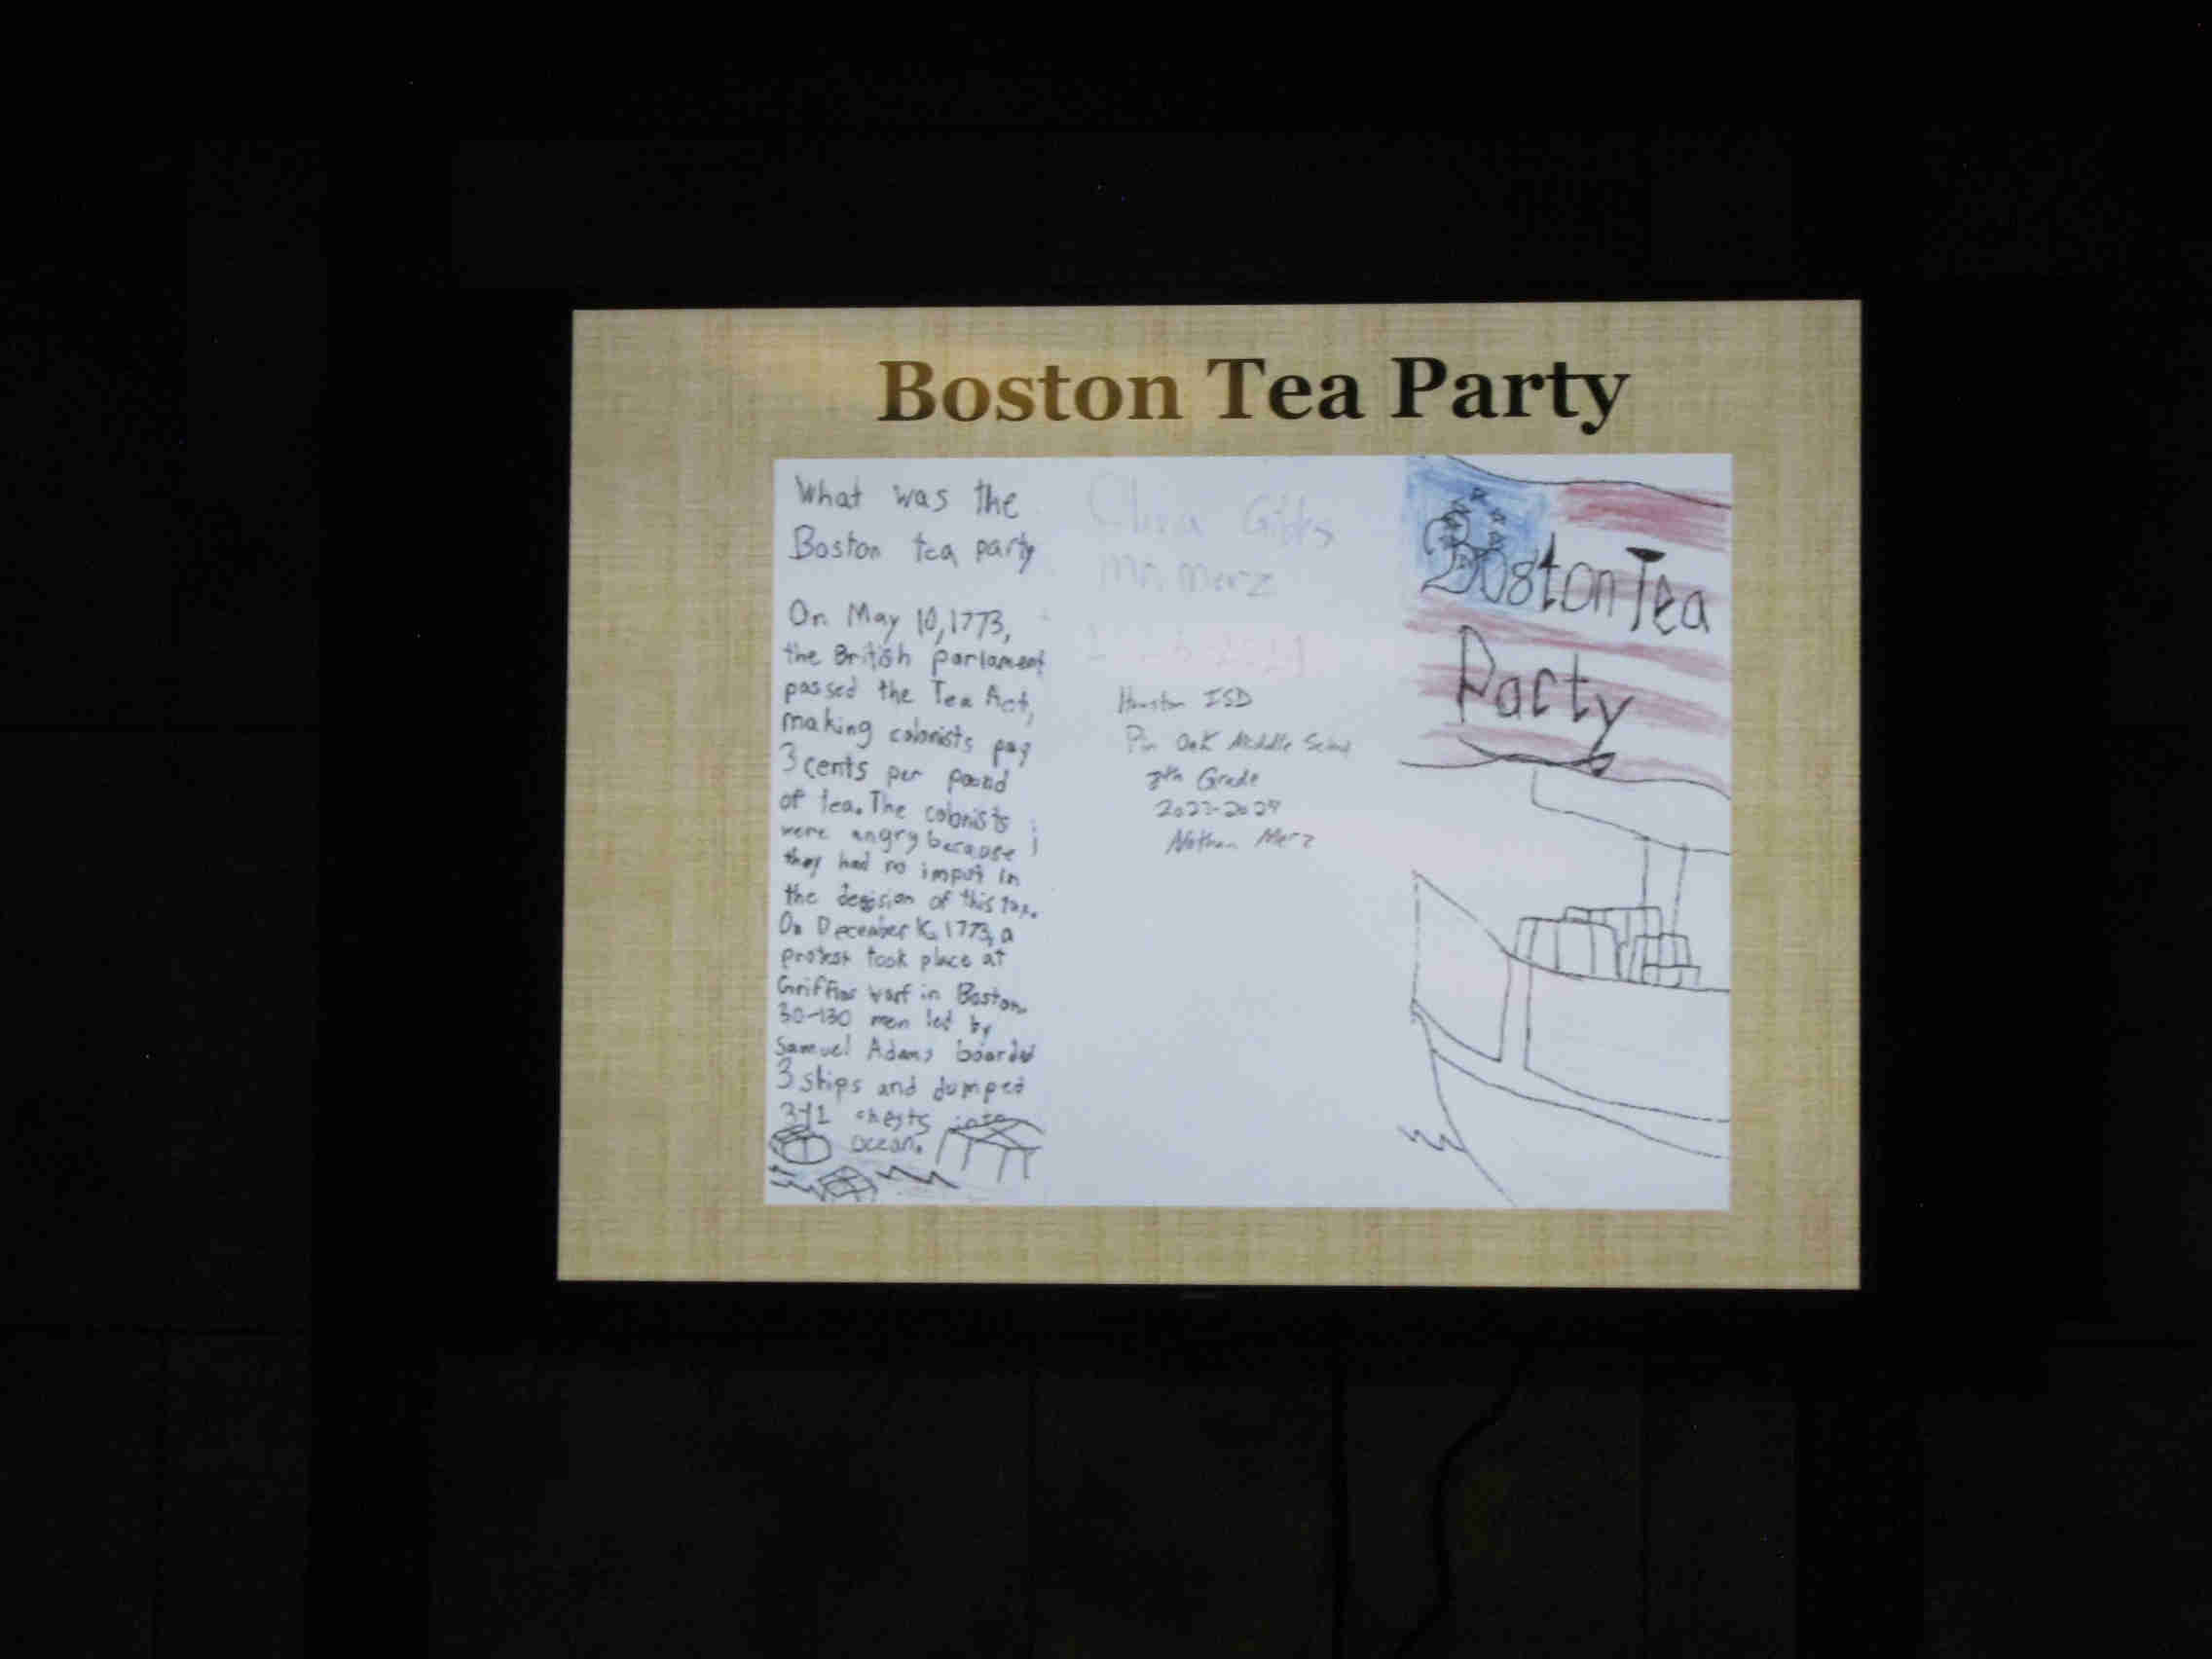 Boston Tea Party
What was the
Boston tea party
On May 10, 1773,
the British parlament
passed the Tea Act,
making colonists pay
3 cents per pound
of tea. The colonists
were angry because
they had no imput in
the decision of this tax.
On December 16, 1773, a
protest took place at
Griffins warf in Boston.
30-130 men led by
Samuel Adams boarded
3 ships and dumped
341 chests into
ocean.
Gibbs
Mr. Merz
Houston ISD
Pin Oak Middle School
8th Grade
2023-2024
Nathan Merz
Boston Tea
Party